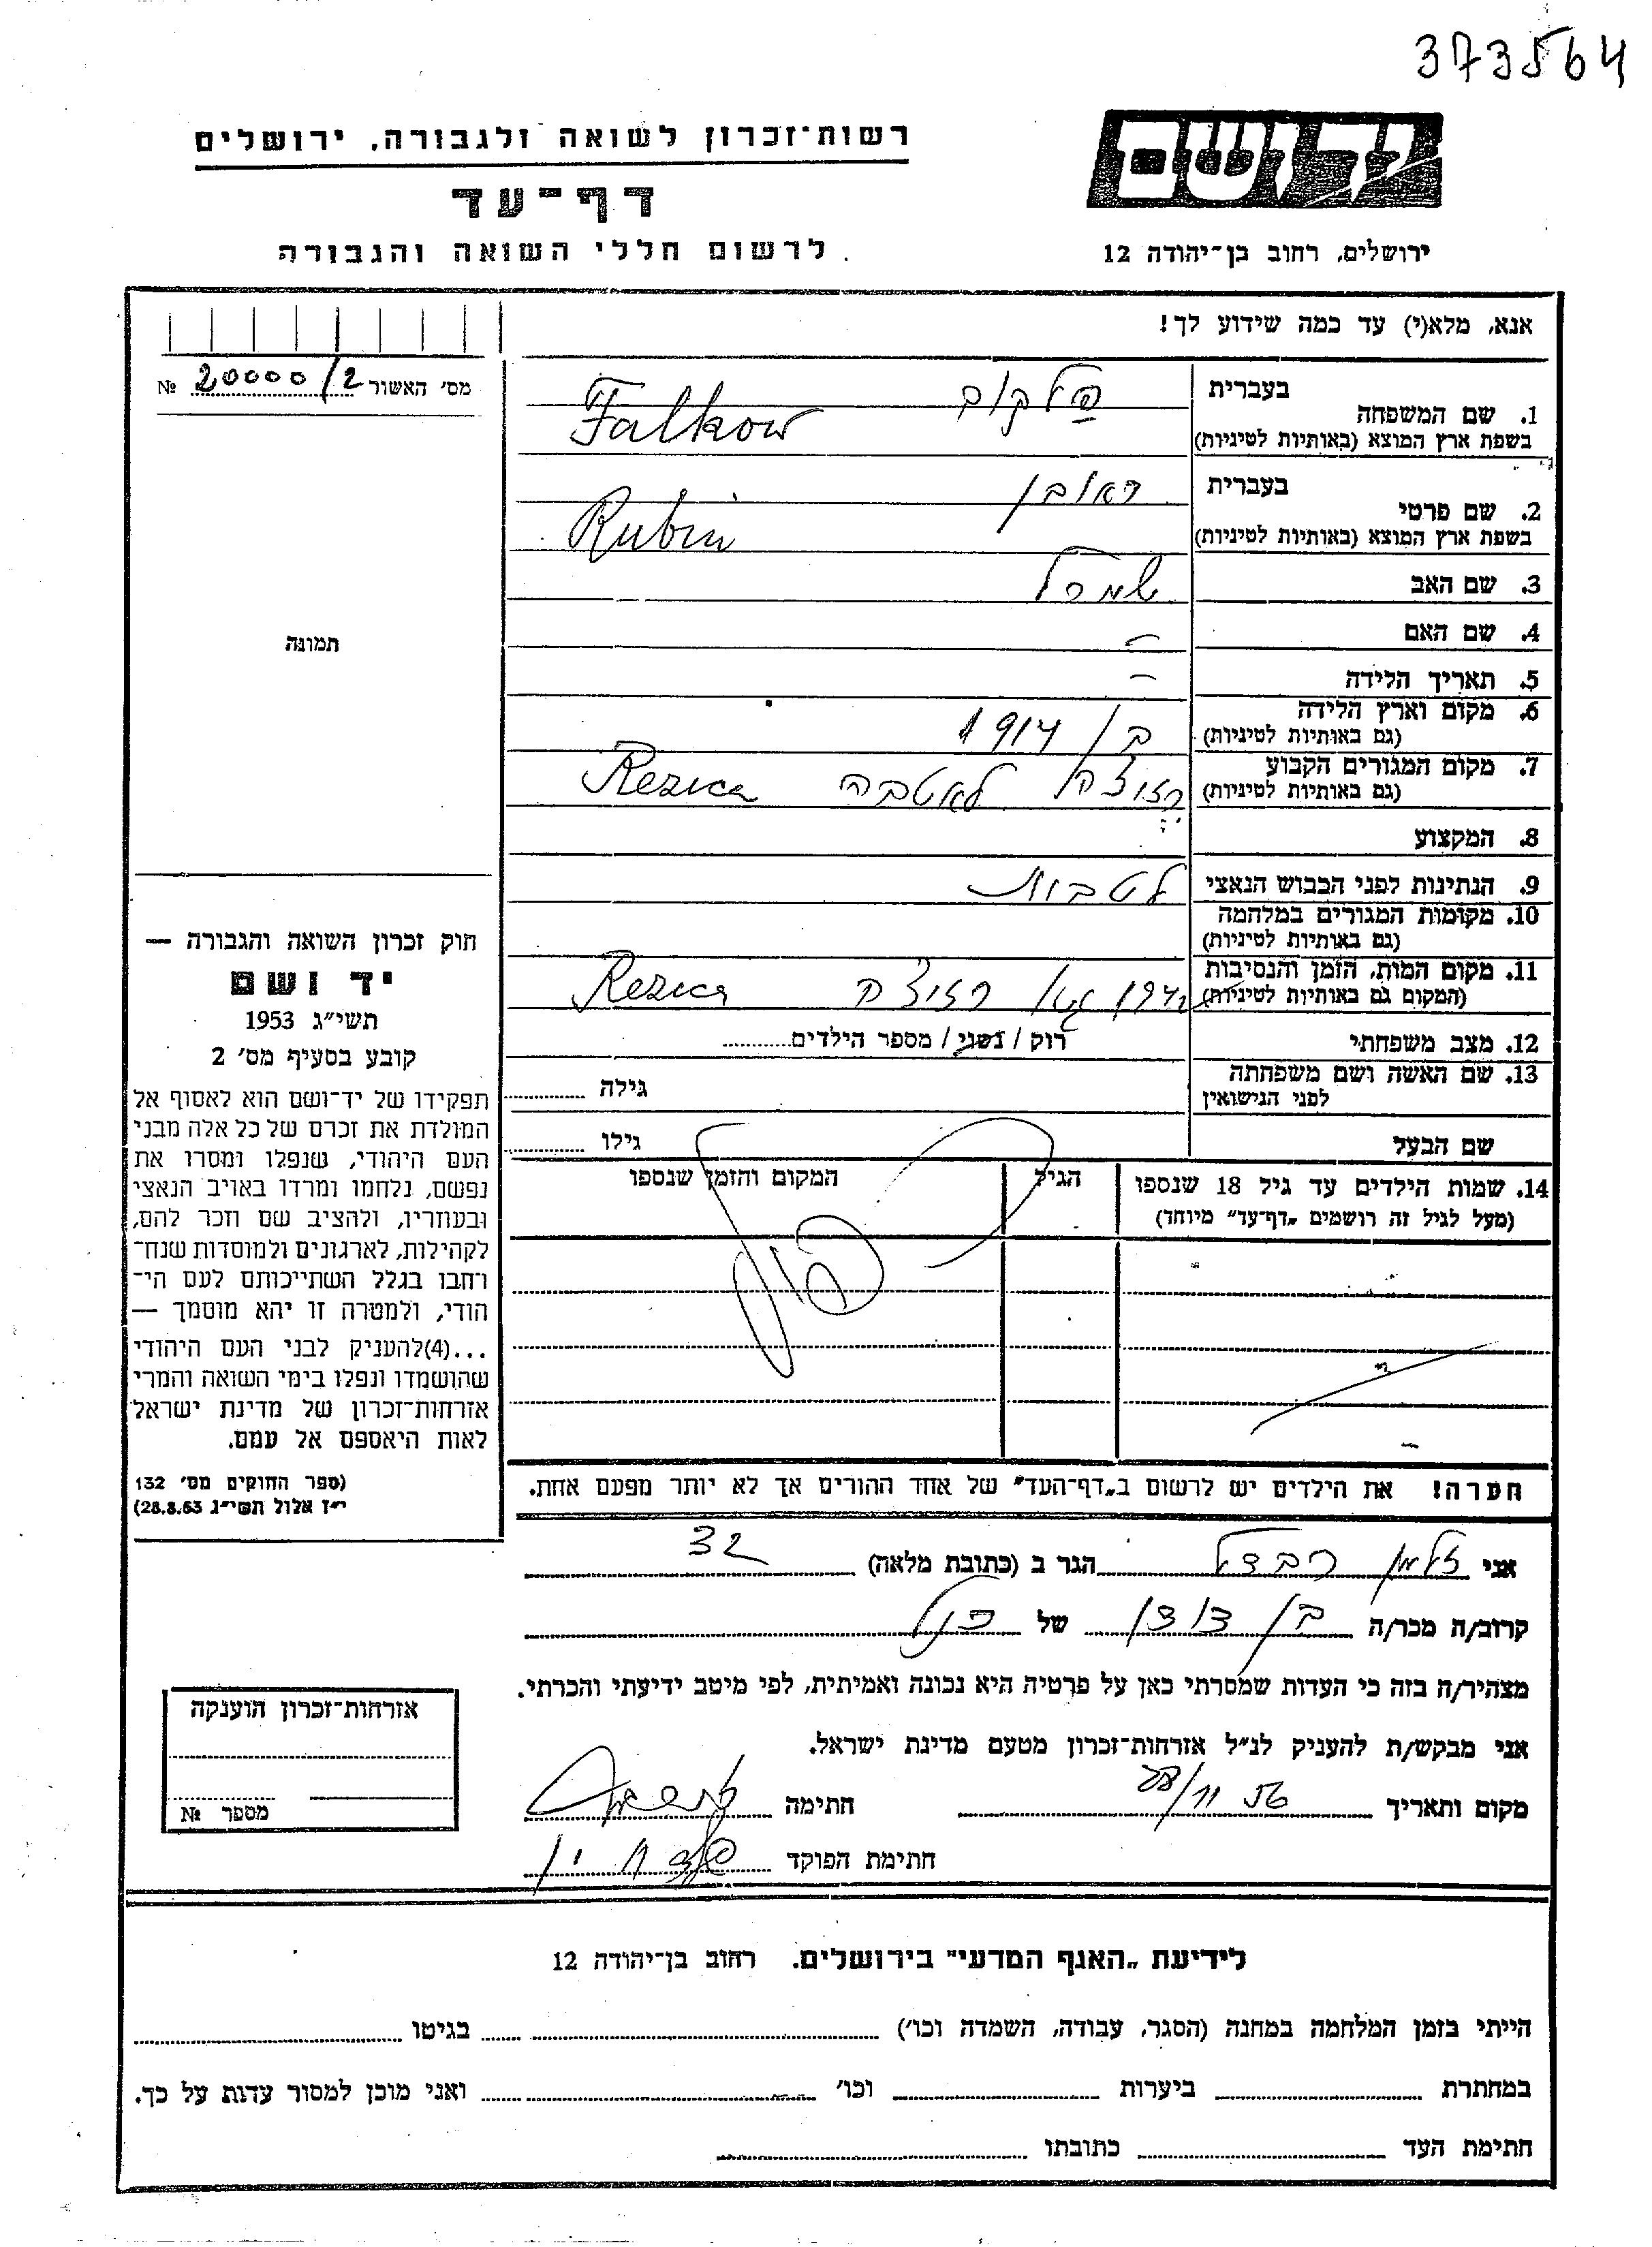 373564
יד ושם
רשות־זכרון לשואה ולגבורה, ירושלים
דף־עד
לרשום חללי השואה והגבורה
ירושלים, רחוב בן־יהודה 12
אנא, מלא(י) עד כמה שידוע לך!
מס' האשור 20000/2 №
1. שם המשפחה
בעברית פלקוב
בשפת ארץ המוצא (באותיות לטיניות) Falkow
2. שם פרטי
בעברית ראובן
בשפת ארץ המוצא (באותיות לטיניות) Rubin
3. שם האב
4. שם האם –
5. תאריך הלידה –
6. מקום וארץ הלידה 1914
(גם באותיות לטיניות)
7. מקום המגורים הקבוע לאטביה Rezica
(גם באותיות לטיניות)
8. המקצוע
9. הנתינות לפני הכבוש הנאצי לטבית
10. מקומות המגורים במלחמה
(גם באותיות לטיניות)
11. מקום המות, הזמן והנסיבות Rezica
(המקום גם באותיות לטיניות)
12. מצב משפחתי רוק / נשוי / מספר הילדים
13. שם האשה ושם משפחתה גילה
לפני הנישואין
שם הבעל גילו
14. שמות הילדים עד גיל 18 שנספו הגיל המקום והזמן שנספו
(מעל לגיל זה רושמים „דף־עד" מיוחד)
תמונה
חוק זכרון השואה והגבורה —
יד ושם
תשי״ג 1953
קובע בסעיף מס' 2
תפקידו של יד־ושם הוא לאסוף אל
המולדת את זכרם של כל אלה מבני
העם היהודי, שנפלו ומסרו את
נפשם, נלחמו ומרדו באויב הנאצי
ובעוזריו, ולהציב שם וזכר להם,
לקהילות, לארגונים ולמוסדות שנח־
רחבו בגלל השתייכותם לעם הי־
הודי, ולמטרה זו יהא מוסמך —
...(4)להעניק לבני העם היהודי
שהושמדו ונפלו בימי השואה והמרי
אזרחות־זכרון של מדינת ישראל
לאות היאספם אל עמם.
(ספר החוקים מס' 132
י״ז אלול תשי״ג 28.8.53)
הערה! את הילדים יש לרשום ב„דף־העד" של אחד ההורים אך לא יותר מפעם אחת.
אני זלמן הגר ב (כתובת מלאה) 32
קרוב/ה מכר/ה בן דודן של הנ״ל
מצהיר/ה בזה כי העדות שמסרתי כאן על פרטיה היא נכונה ואמיתית, לפי מיטב ידיעתי והכרתי.
אני מבקש/ת להעניק לנ״ל אזרחות־זכרון מטעם מדינת ישראל.
מקום ותאריך חתימה
חתימת הפוקד
אזרחות־זכרון הוענקה
מספר №
לידיעת „האגף המדעי" בירושלים. רחוב בן־יהודה 12
הייתי בזמן המלחמה במחנה (הסגר, עבודה, השמדה וכו') בגיטו
במחתרת ביערות וכו' ואני מוכן למסור עדות על כך.
חתימת העד כתובתו